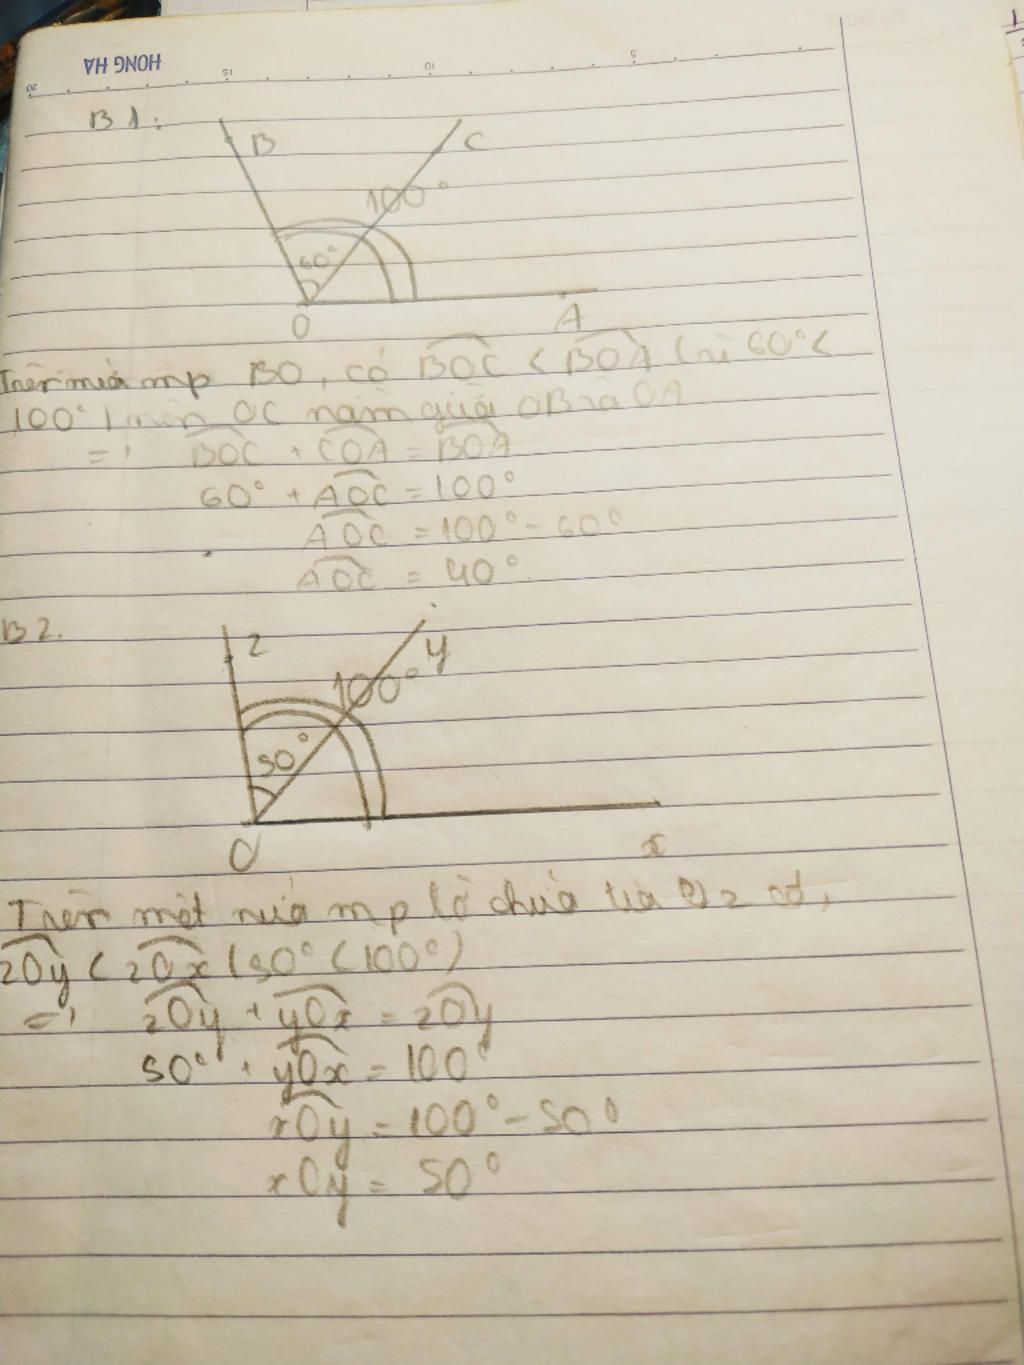 HONG HA
20 15 10 5
B1:
B C
100°
60°
O A
Trên nửa mp BO, có BOC < BOA (vì 60° <
100°) nên OC nằm giữa OB và OA
=> BOC + COA = BOA
60° + AOC = 100°
AOC = 100° - 60°
AOC = 40°.
B2.
z y
100°
50°
O x
Trên một nửa mp bờ chứa tia Oz có,
zOy < zOx (50° < 100°)
=> zOy + yOx = zOy
50° + yOx = 100°
xOy = 100° - 50°
xOy = 50°